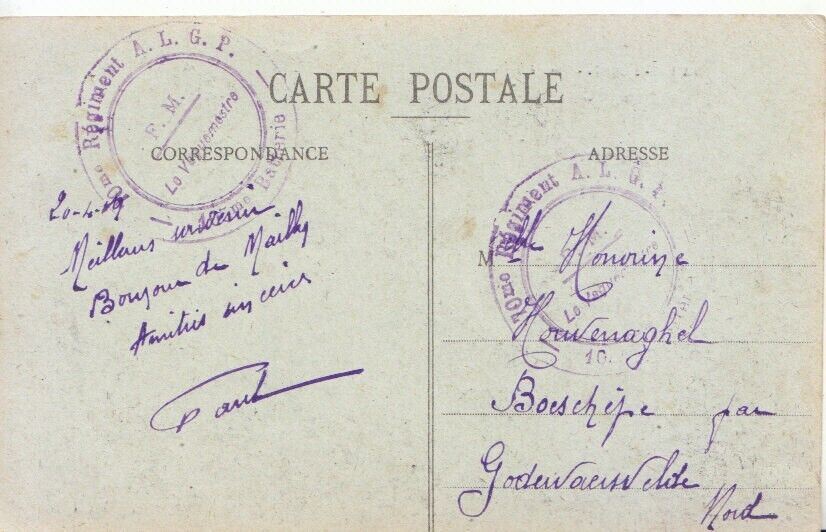 CARTE POSTALE
CORRESPONDANCE
ADRESSE
70me Régiment A. L. G. P.
F. M.
Le Vaguemestre
Batterie
Meilleurs souvenirs
Bonjour de Mailly
Amitiés sincères
Paul
70me Régiment A. L. G. P.
Le Vaguemestre
10.
Mlle Honorine
Houvenaghel
Boeschèpe par
Godewaersvelde
Nord